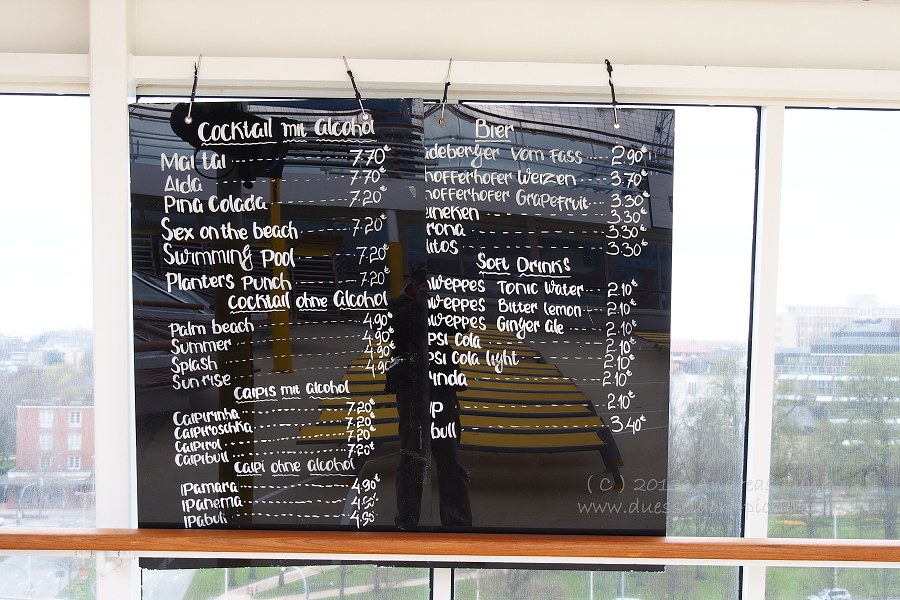 Cocktail mit Alcohol
Mai tai 7.70€
Aida 7.70€
Pina Colada 7.20€
Sex on the beach 7.20€
Swimming Pool 7.20€
Planters Punch 7.20€
Cocktail ohne Alcohol
Palm beach 4.90€
Summer 4.90€
Splash 4.90€
Sunrise 4.90€
Caipis mit alcohol
Caipirinha 7.20€
Caipiroschka 7.20€
Caipirol 7.20€
Caipibull 7.20€
Caipi ohne alcohol
Ipamara 4.90€
Ipanema 4.50€
Ipabull 4.50€
Bier
deberger vom Fass 2.90€
höfferhofer Weizen 3.70€
höfferhofer Grapefruit 3.30€
eineken 3.30€
rona 3.30€
litos 3.30€
Soft Drinks
hweppes Tonic Water 2.10€
weppes Bitter Lemon 2.10€
weppes Ginger Ale 2.10€
psi Cola 2.10€
psi Cola light 2.10€
unda 2.10€
up 2.10€
bull 3.40€
(C) 201
www.duessel